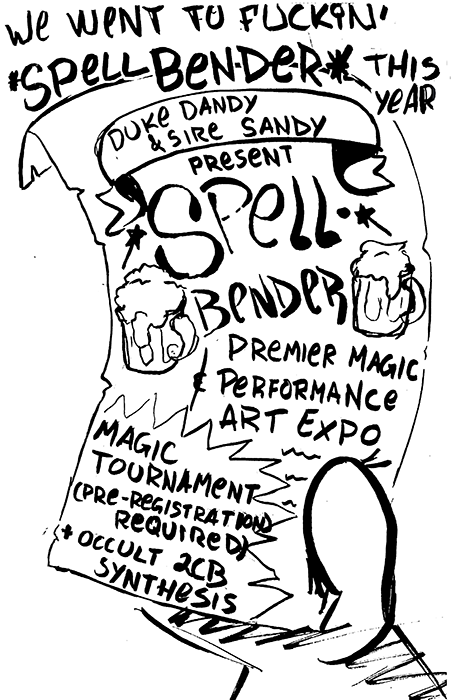 We WENT TO FUCKIN'
*SPeLLBeN·D·e·R* THIS
YeAR
DUKe DANDY
& SIRe SANDY
PRESENT
SPeLL·
BeNDeR
PREMIER MAGIC
& PeRFORMANCe
ART EXPO
MAGIC
TOURNAMENT
(PRE-REGISTRATION
REQUIRED)
+ OCCULT 2CB
SYNTHeSIS